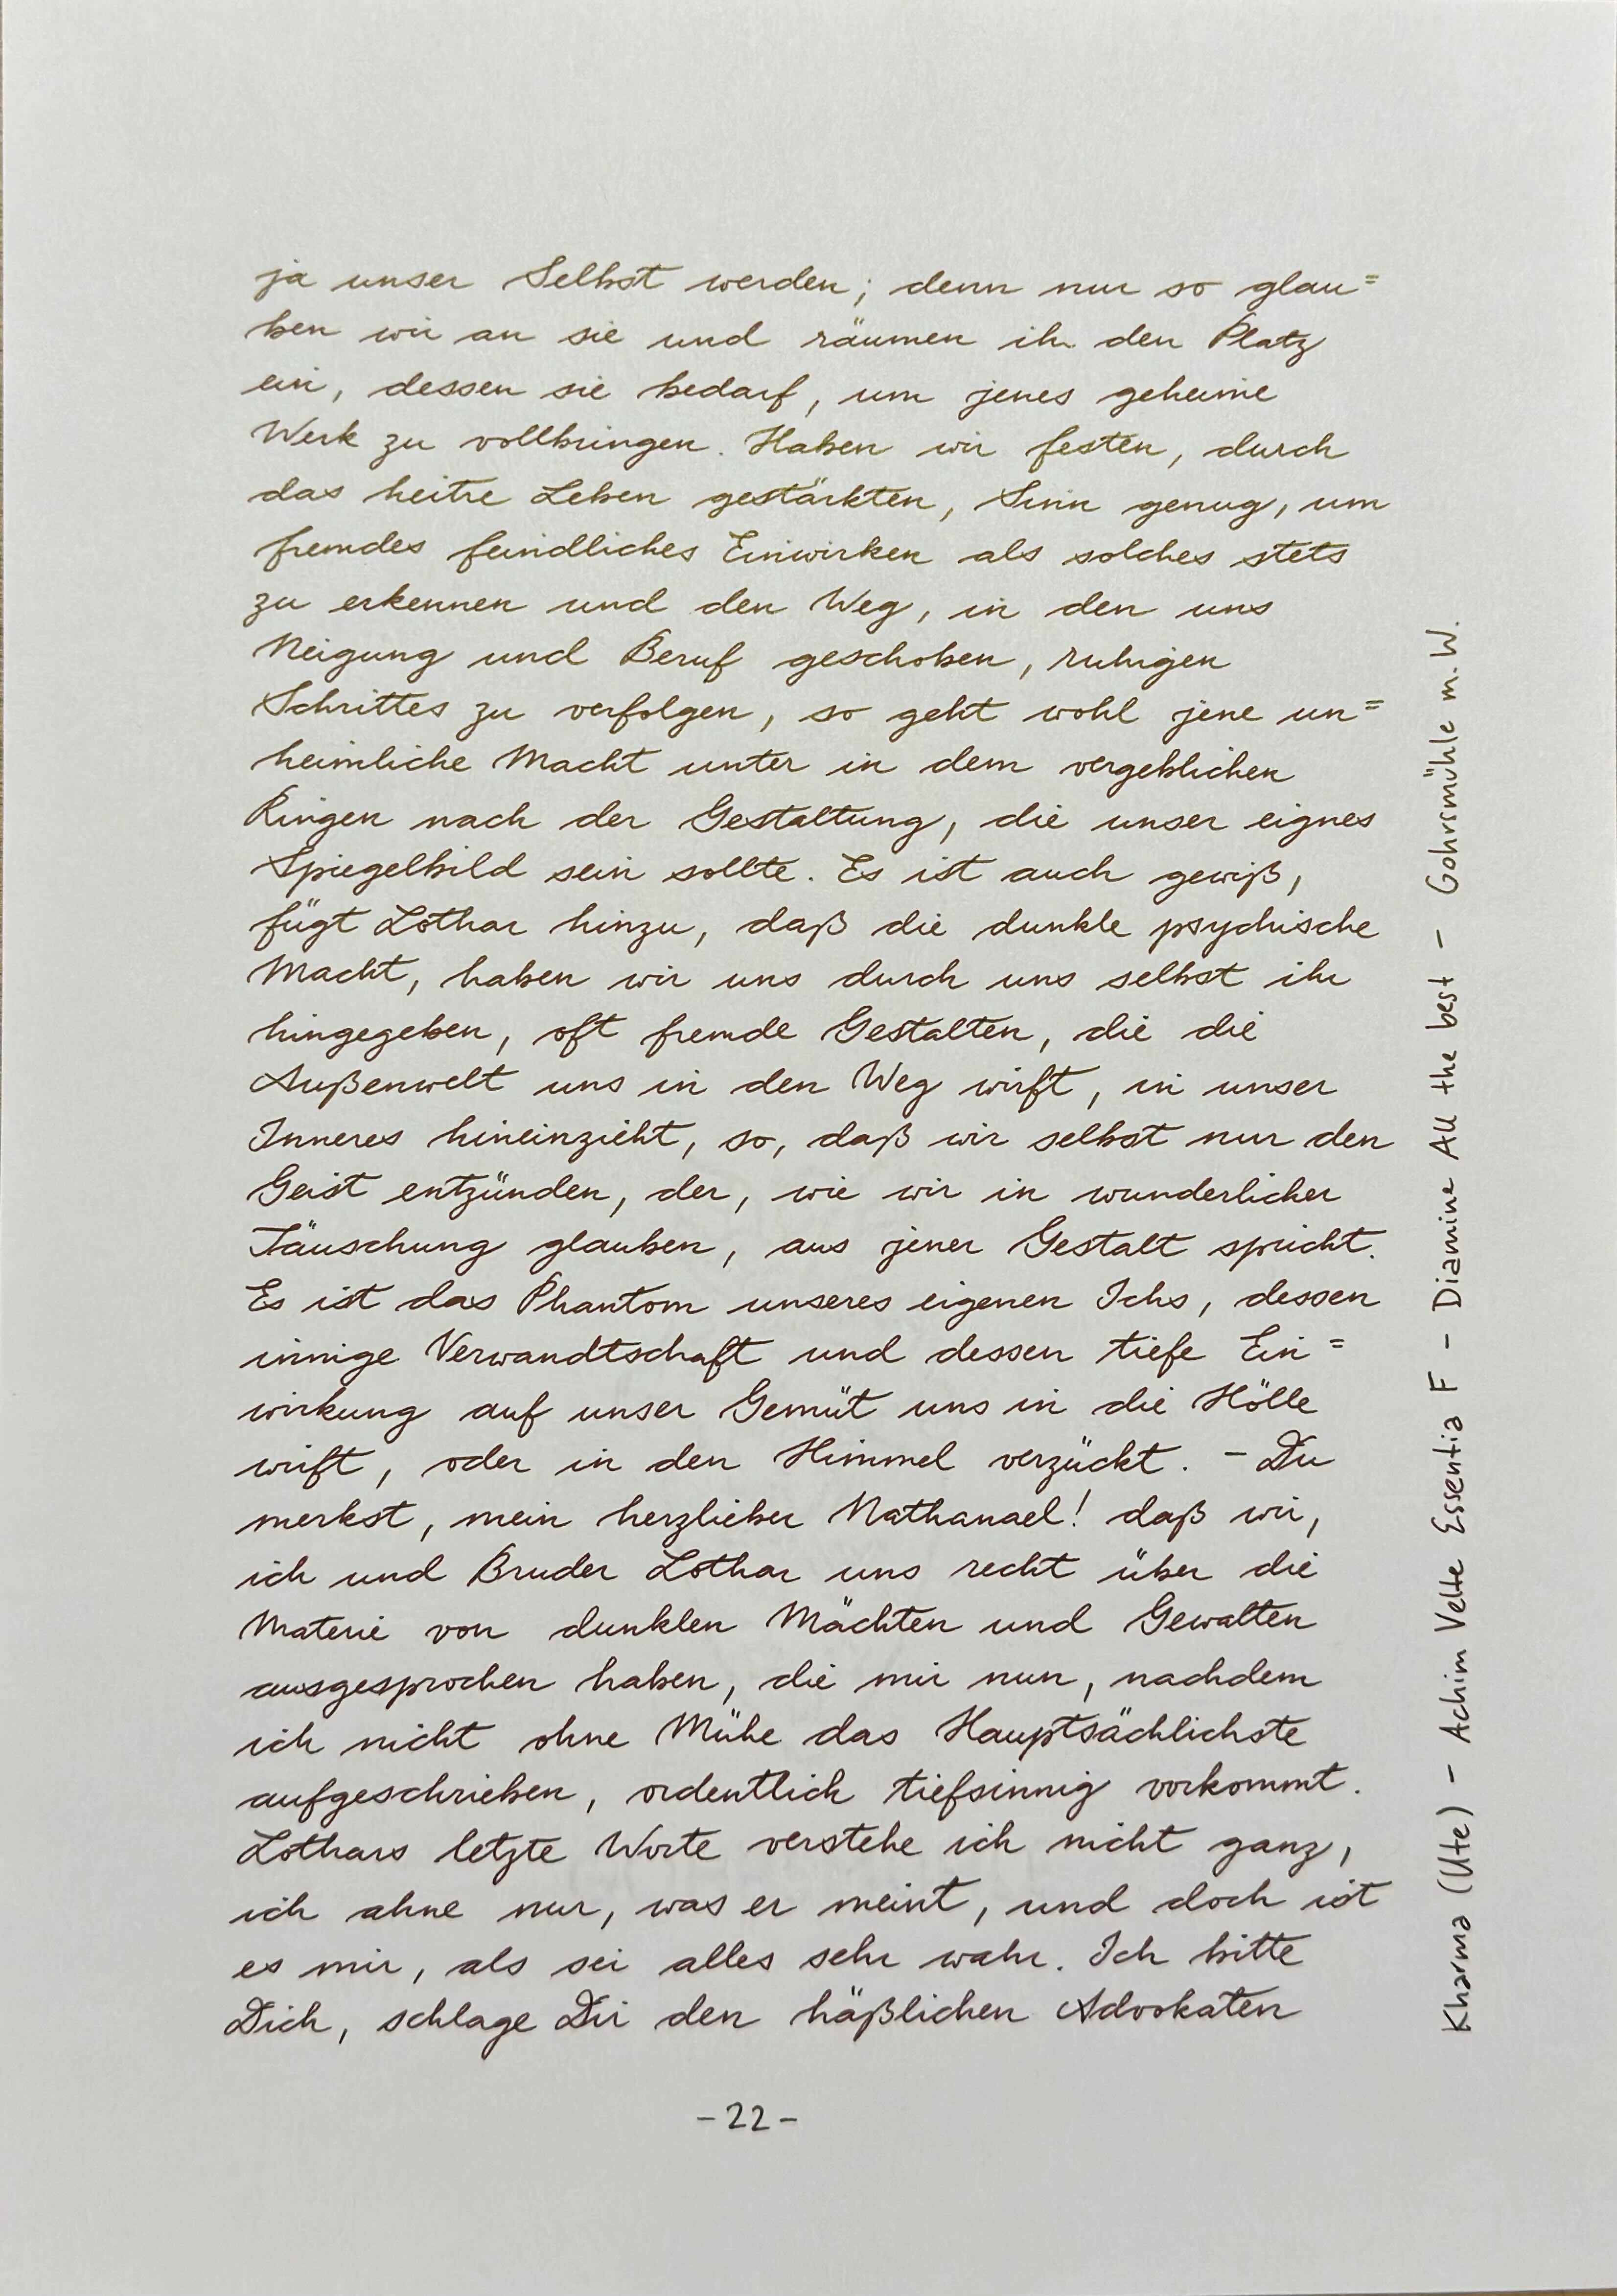 ja unser Selbst werden; denn nur so glau=
ben wir an sie und räumen ihr den Platz
ein, dessen sie bedarf, um jenes geheime
Werk zu vollbringen. Haben wir festen, durch
das heitre Leben gestärkten, Sinn genug, um
fremdes feindliches Einwirken als solches stets
zu erkennen und den Weg, in den uns
Neigung und Beruf geschoben, ruhigen
Schrittes zu verfolgen, so geht wohl jene un=
heimliche Macht unter in dem vergeblichen
Ringen nach der Gestaltung, die unser eignes
Spiegelbild sein sollte. Es ist auch gewiß,
fügt Lothar hinzu, daß die dunkle psychische
Macht, haben wir uns durch uns selbst ihr
hingegeben, oft fremde Gestalten, die die
Außenwelt uns in den Weg wirft, in unser
Inneres hineinzieht, so, daß wir selbst nur den
Geist entzünden, der, wie wir in wunderlicher
Täuschung glauben, aus jener Gestalt spricht.
Es ist das Phantom unseres eigenen Ichs, dessen
innige Verwandtschaft und dessen tiefe Ein=
wirkung auf unser Gemüt uns in die Hölle
wirft, oder in den Himmel verzückt. – Du
merkst, mein herzlieber Nathanael! daß wir,
ich und Bruder Lothar uns recht über die
Materie von dunklen Mächten und Gewalten
ausgesprochen haben, die mir nun, nachdem
ich nicht ohne Mühe das Hauptsächlichste
aufgeschrieben, ordentlich tiefsinnig vorkommt.
Lothars letzte Worte verstehe ich nicht ganz,
ich ahne nur, was er meint, und doch ist
es mir, als sei alles sehr wahr. Ich bitte
Dich, schlage Dir den häßlichen Advokaten
- 22 -
Kharma (Ute) - Achim Velte Essentia F - Diamine All the best - Gohrsmühle m.W.